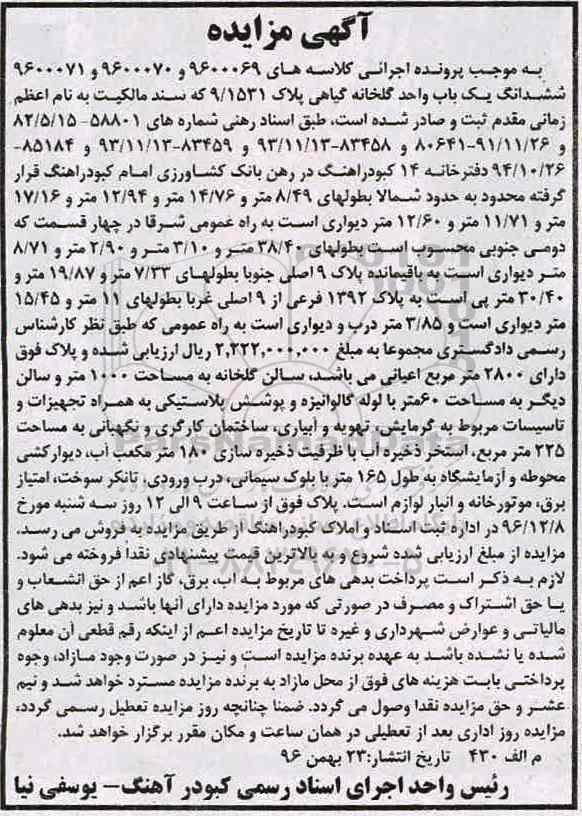 آگهی مزایده
به موجب پرونده اجرائی کلاسه های ۹۶۰۰۰۶۹ و ۹۶۰۰۰۷۰ و ۹۶۰۰۰۷۱
ششدانگ یک باب واحد گلخانه گیاهی پلاک ۹/۱۵۳۱ که سند مالکیت به نام اعظم
زمانی مقدم ثبت و صادر شده است، طبق اسناد رهنی شماره های ۵۸۸۰۱- ۸۲/۵/۱۵
و ۹۱/۱۱/۲۶-۸۰۶۴۱ و ۸۳۴۵۸-۹۳/۱۱/۱۳ و ۸۳۴۵۹-۹۳/۱۱/۱۳ و ۸۵۱۸۴-
۹۴/۱۰/۲۶ دفترخانه ۱۴ کبودراهنگ در رهن بانک کشاورزی امام کبودراهنگ قرار
گرفته محدود به حدود شمالا بطولهای ۸/۴۹ متر و ۱۴/۷۶ متر و ۱۲/۹۴ متر و ۱۷/۱۶
متر و ۱۱/۷۱ متر و ۱۲/۶۰ متر دیواری است به راه عمومی شرقا در چهار قسمت که
دومی جنوبی محسوب است بطولهای ۳۸/۴۰ متر و ۳/۱۰ متر و ۲/۹۰ متر و ۸/۷۱
متر دیواری است به باقیمانده پلاک ۹ اصلی جنوبا بطولهای ۷/۳۳ متر و ۱۹/۸۷ متر و
۳۰/۴۰ متر پی است به پلاک ۱۳۹۲ فرعی از ۹ اصلی غربا بطولهای ۱۱ متر و ۱۵/۴۵
متر دیواری است و ۳/۸۵ متر درب و دیواری است به راه عمومی که طبق نظر کارشناس
رسمی دادگستری مجموعا به مبلغ ۲,۲۲۲,۰۰۰,۰۰۰ ریال ارزیابی شده و پلاک فوق
دارای ۲۸۰۰ متر مربع اعیانی می باشد، سالن گلخانه به مساحت ۱۰۰۰ متر و سالن
دیگر به مساحت ۶۰متر با لوله گالوانیزه و پوشش پلاستیکی به همراه تجهیزات و
تاسیسات مربوط به گرمایش، تهویه و آبیاری، ساختمان کارگری و نگهبانی به مساحت
۲۲۵ متر مربع، استخر ذخیره آب با ظرفیت ذخیره سازی ۱۸۰ متر مکعب آب، دیوارکشی
محوطه و آزمایشگاه به طول ۱۶۵ متر با بلوک سیمانی، درب ورودی، تانکر سوخت، امتیاز
برق، موتورخانه و انبار لوازم است. پلاک فوق از ساعت ۹ الی ۱۲ روز سه شنبه مورخ
۹۶/۱۲/۸ در اداره ثبت اسناد و املاک کبودراهنگ از طریق مزایده به فروش می رسد.
مزایده از مبلغ ارزیابی شده شروع و به بالاترین قیمت پیشنهادی نقدا فروخته می شود.
لازم به ذکر است پرداخت بدهی های مربوط به آب، برق، گاز اعم از حق انشعاب و
یا حق اشتراک و مصرف در صورتی که مورد مزایده دارای آنها باشد و نیز بدهی های
مالیاتی و عوارض شهرداری و غیره تا تاریخ مزایده اعم از اینکه رقم قطعی آن معلوم
شده یا نشده باشد به عهده برنده مزایده است و نیز در صورت وجود مازاد، وجوه
پرداختی بابت هزینه های فوق از محل مازاد به برنده مزایده مسترد خواهد شد و نیم
عشر و حق مزایده نقدا وصول می گردد. ضمنا چنانچه روز مزایده تعطیل رسمی گردد،
مزایده روز اداری بعد از تعطیلی در همان ساعت و مکان مقرر برگزار خواهد شد.
م الف ۴۳۰ تاریخ انتشار:۲۳ بهمن ۹۶
رئیس واحد اجرای اسناد رسمی کبودر آهنگ- یوسفی نیا
ParsNamadData